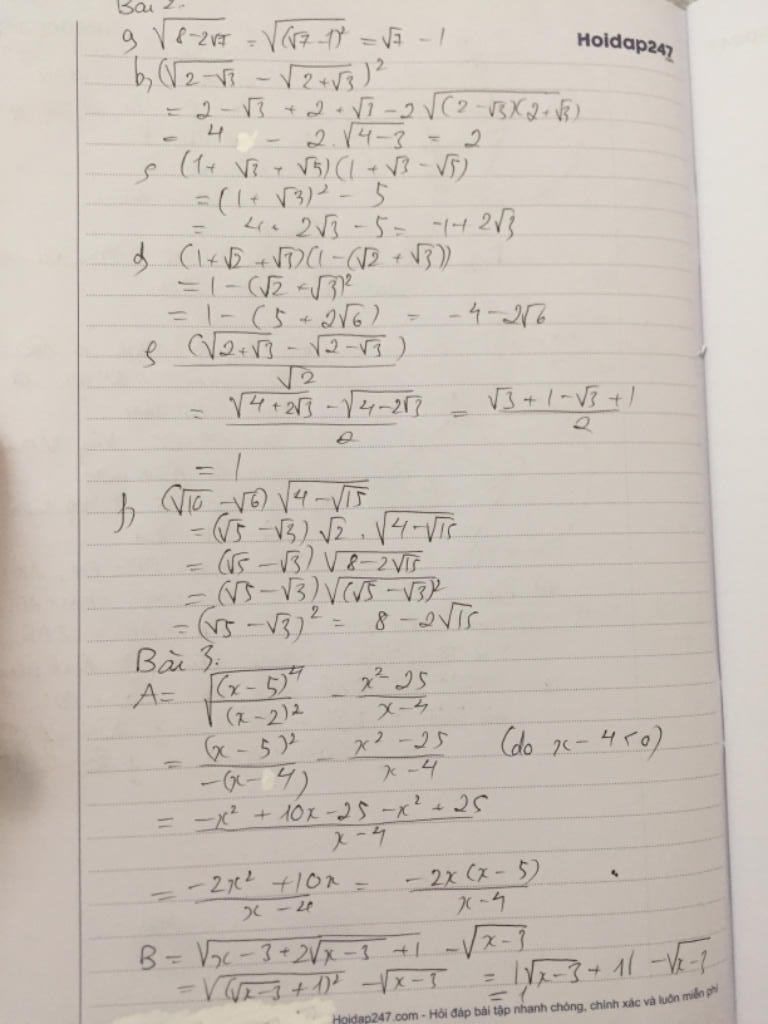 Bài 2.
a, √(8-2√7) = √((√7-1)²) = √7 - 1
Hoidap247
b, (√(2-√3) - √(2+√3))²
= 2 - √3 + 2 + √3 - 2√((2-√3)(2+√3))
= 4 - 2.√(4-3) = 2
c, (1+ √3 + √5)(1 + √3 - √5)
= (1 + √3)² - 5
= 4 + 2√3 - 5 = -1 + 2√3
d, (1+√2 +√3)(1-(√2 + √3))
= 1 - (√2 + √3)²
= 1 - (5 + 2√6) = -4-2√6
e, (√(2+√3) - √(2-√3)) / √2
= (√(4+2√3) - √(4-2√3)) / 2 = (√3 + 1 - √3 + 1) / 2
= 1
f, (√10 - √6) √(4-√15)
= (√5 - √3) √2 . √(4-√15)
= (√5 - √3) √(8-2√15)
= (√5 - √3) √((√5 - √3)²)
= (√5 - √3)² = 8 - 2√15
Bài 3.
A = √((x-5)⁴ / (x-2)²) - (x²-25) / (x-4)
= (x-5)² / -(x-4) - (x²-25) / (x-4) (do x-4<0)
= (-x² + 10x - 25 - x² + 25) / (x-4)
= (-2x² + 10x) / (x-4) = -2x(x-5) / (x-4)
B = √(x-3+2√(x-3) +1) - √(x-3)
= √((√(x-3) + 1)²) - √(x-3) = |√(x-3) + 1| - √(x-3)
= 1
Hoidap247.com - Hỏi đáp bài tập nhanh chóng, chính xác và luôn miễn phí